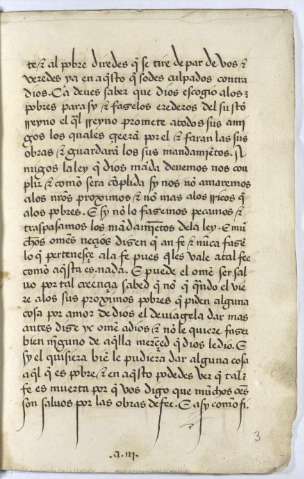 te / ⁊ al pobre diredes q̄ se tire de par de vos ⁊
veredes ya en aq̄sto q̄ sodes culpados contra
dios. Ca deues saber que dios escogio alos
pobres para sy / ⁊ fagelos erederos del su sto
rreyno el q̄l rreyno promete atodos sus ami
gos los quales creerā por el ⁊ faran las sus
obras ⁊ guardarā los sus mandamiētos.
migos la ley q̄ dios māda deuemos nos con
plir̄ ⁊ comō sera cōplida sy nos nō amaremos
alos nr̄os proximos ⁊ nō mas alos rricos q̄
alos pobres. E sy nō lo fasemos pecamos ⁊
traspasamos los mādamiētos dela ley. E mu
chos omēs neçios disen q̄ an fe ⁊ nūca fasē
lo q̄ pertenesçe ala fe pues q̄les vale atal fee
como aq̄sta es nada. E puede el omē ser sal
uo por tal creençia sabed q̄ nō q̄ quādo el vie
re alos sus proximos pobres q̄ piden alguna
cosa por amor de dios el deuiagela dar mas
antes dise ve omē adios ⁊ nō le quiere faser
bien nīguno de aq̄lla merçed q̄ dios le dio. E
sy el quisiera biē le pudiera dar alguna cosa
aq̄l q̄ es pobre / ⁊ en aq̄sto podedes ver q̄ tal
fe es muerta por q̄ vos digo que muchos
son saluos por las obras de fee. E asy como si
3
.a.iii.